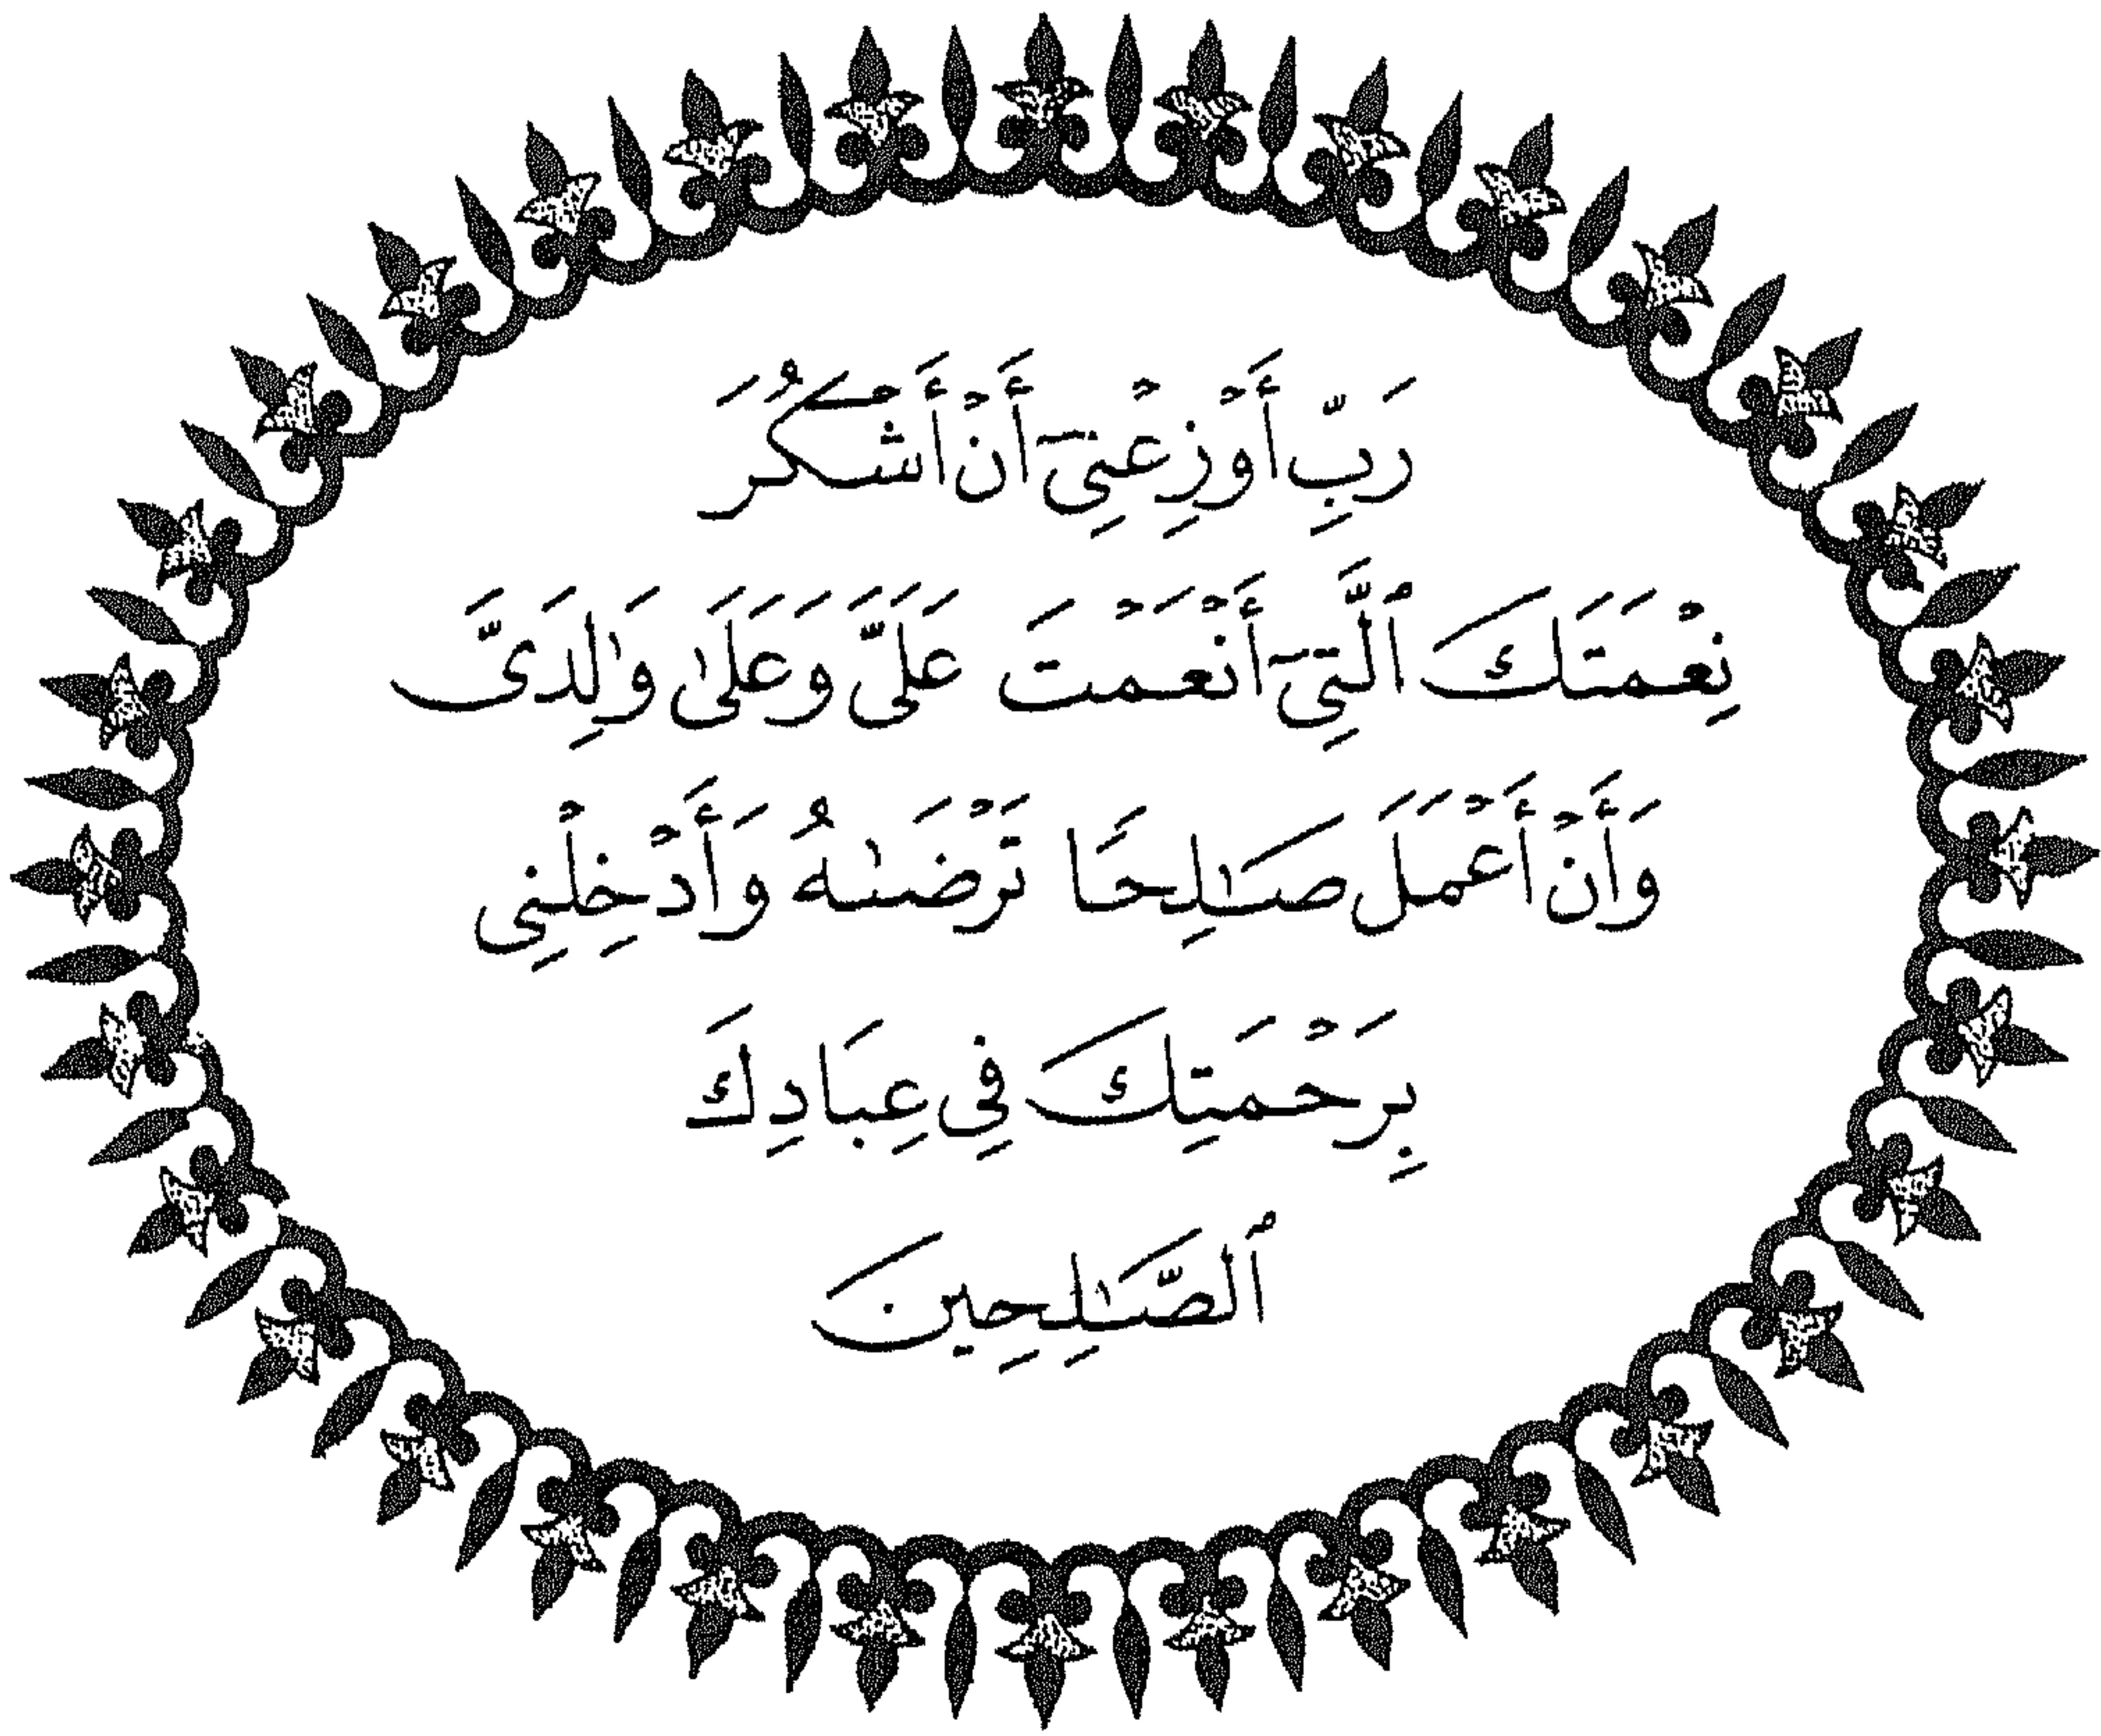 رَبِّ أَوْزِعْنِىٓ أَنْ أَشْكُرَ
نِعْمَتَكَ ٱلَّتِىٓ أَنْعَمْتَ عَلَىَّ وَعَلَىٰ وَٰلِدَىَّ
وَأَنْ أَعْمَلَ صَٰلِحًا تَرْضَىٰهُ وَأَدْخِلْنِى
بِرَحْمَتِكَ فِى عِبَادِكَ
ٱلصَّٰلِحِينَ